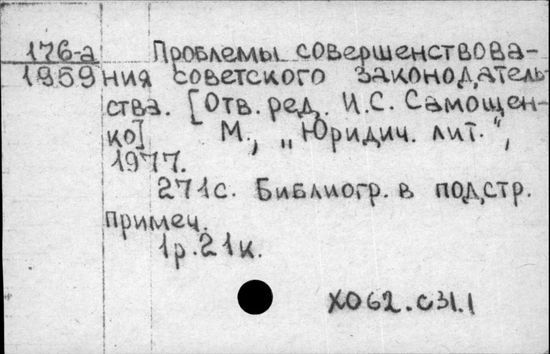 176-а Проблемы совершенствова-
1959 ния советского законодатель-
ства. [Отв. ред. И.С. Самощен-
ко] М., „Юридич. лит.“,
1977.
271с. Библиогр. в подстр.
примеч.
1р.21к.
ХО62.с31.1